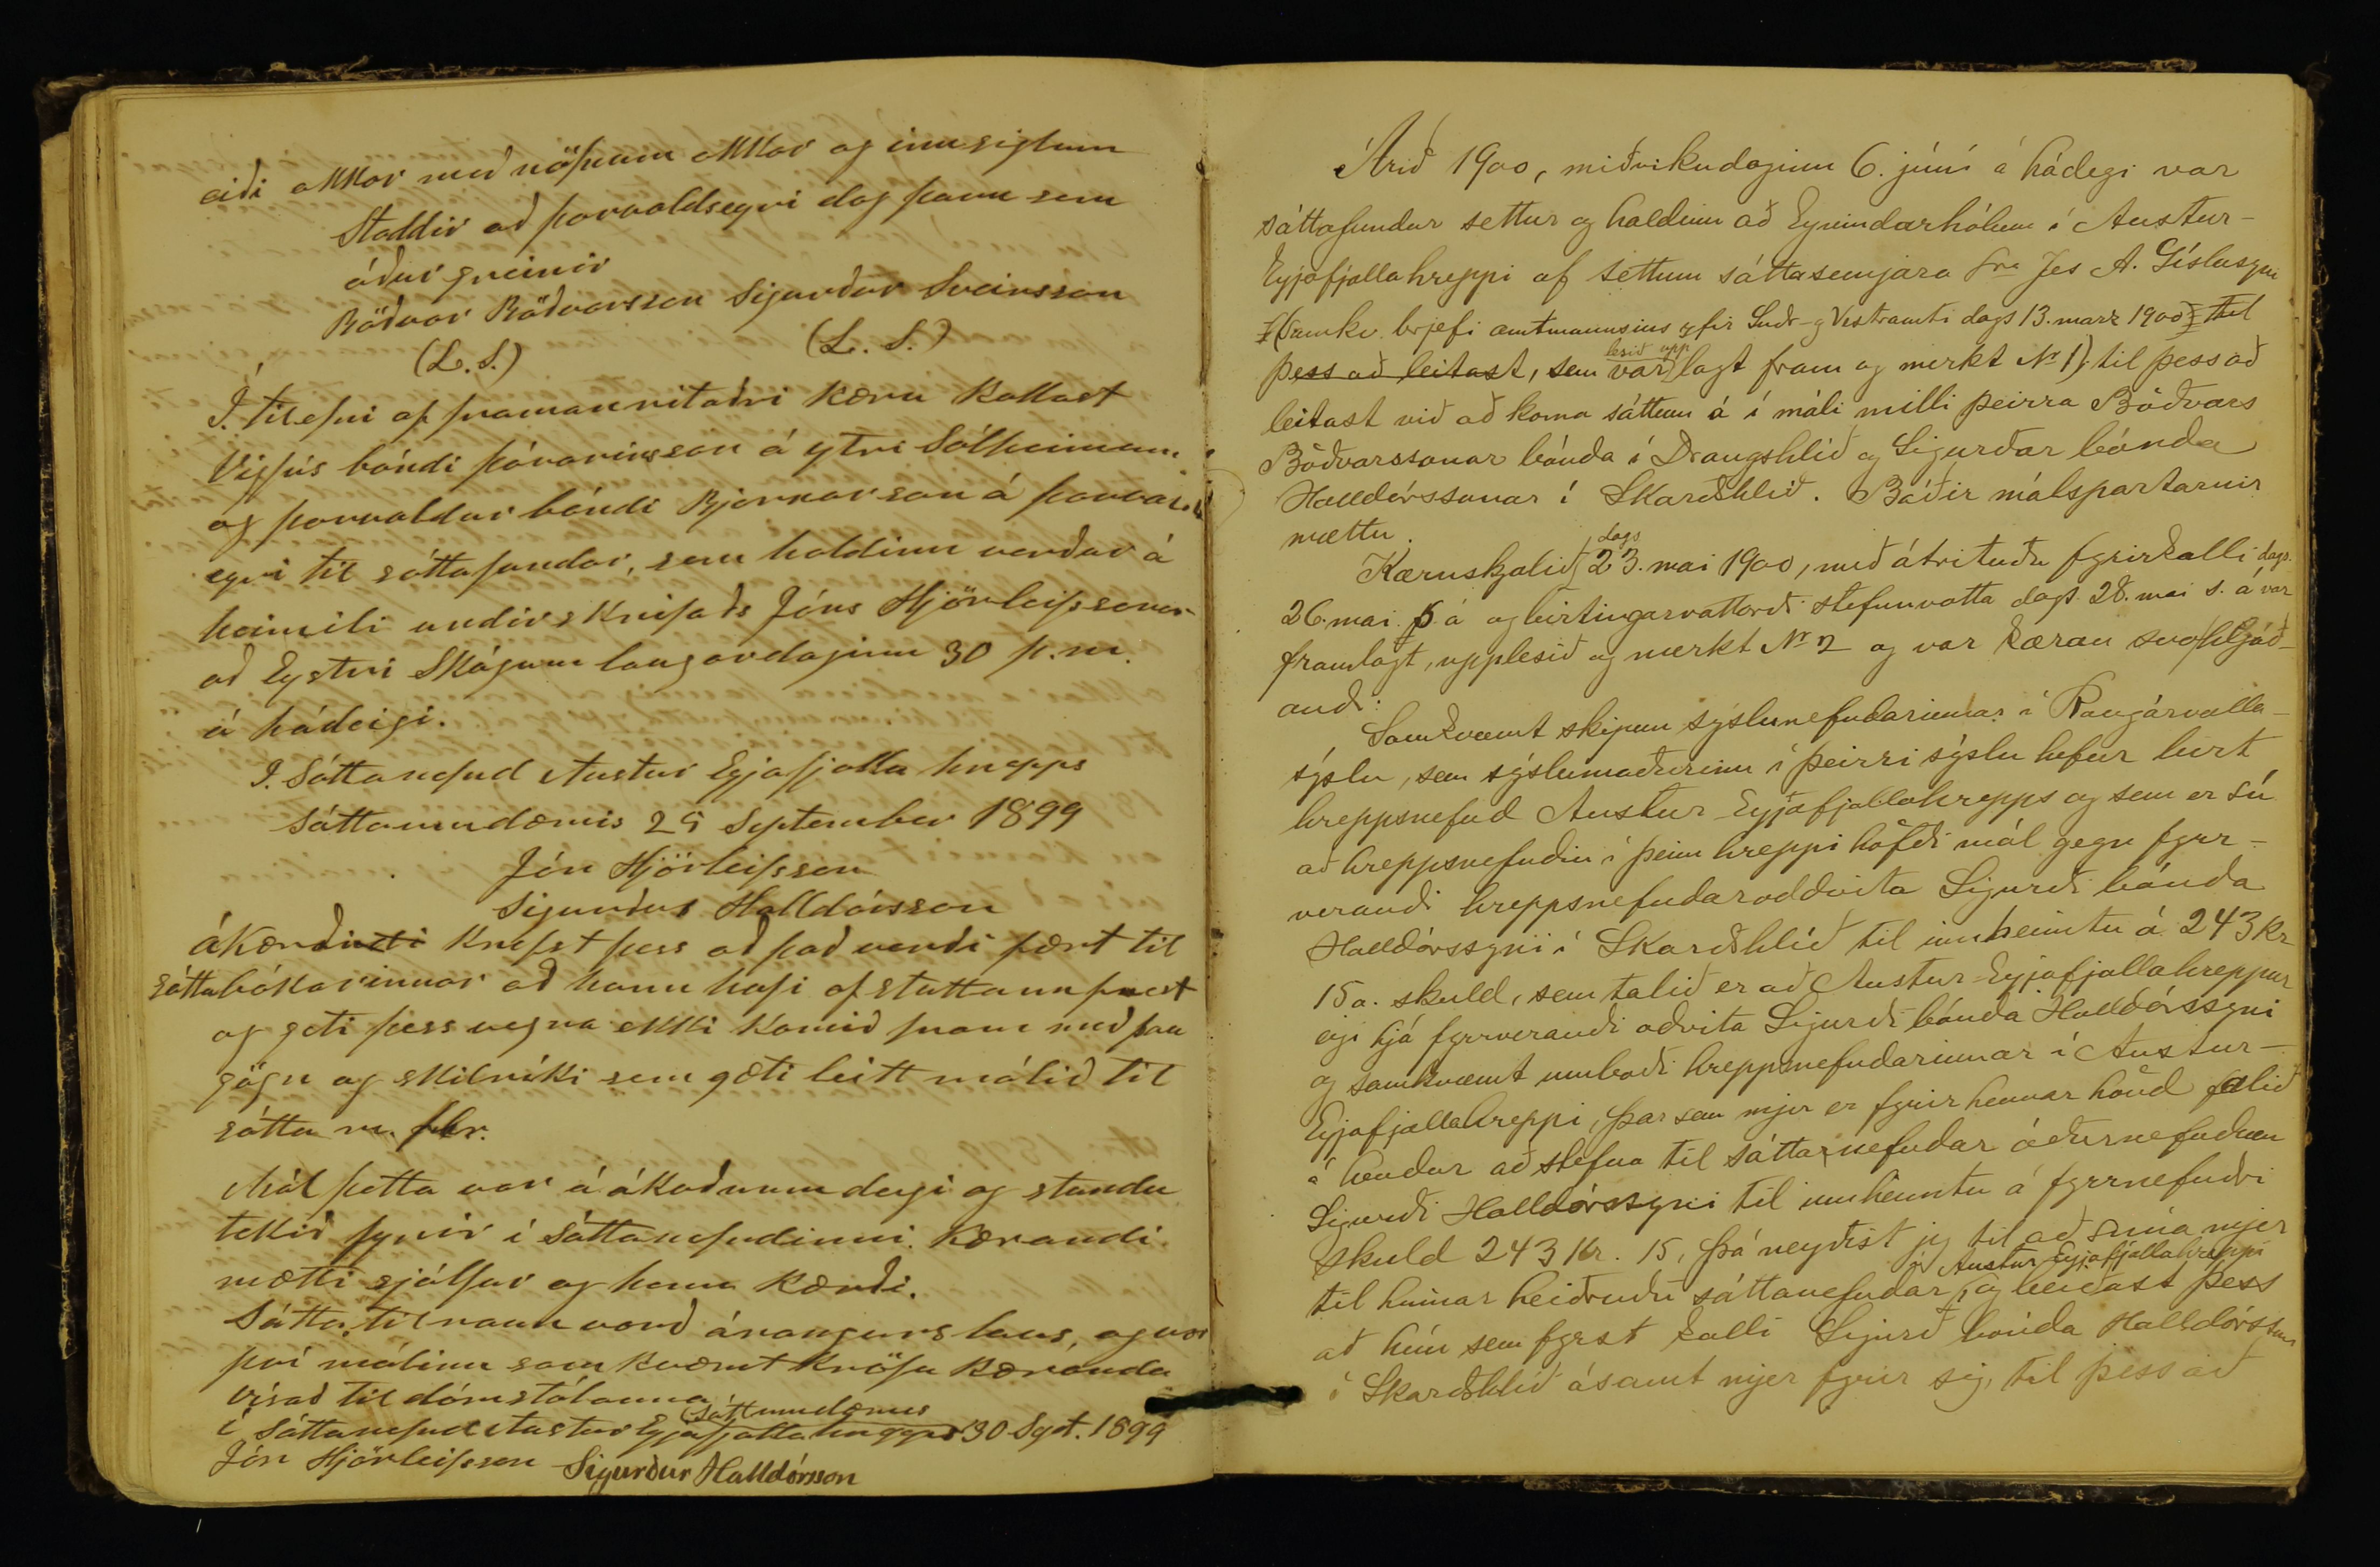 eiði okkar með nöfnum okkar og innsiglum
Staddir að þorvaldseyri dag þann sem
áður greinir
Böðvar Böðvarsson Sigurður Sveinsson
(L. S.) (L. S.)
Í tilefni af framanritaðri kæru kallast
Vigfús bóndi þórarinsson á ytri Sólheimum
og þorvaldur bóndi Bjornarson á þorvalds
eyri til sáttafundar, sem haldinn verður á
heimili undirskrifaðs Jóns Hjörleifssonar
að Eystri Skógum laugardaginn 30 þ.m.
á hádeigi.
I. Sáttanefnd Austur Eyjafjalla hrepps
Sáttaumdæmis 25 September 1899
Jón Hjörleifsson
Sigurður Halldórsson
ákærði krefst þess að það verði fært til
sáttabókarinnar að hann hafi of stuttann frest
og geti þess vegna ekki komið fram með þau
gögn og skilríki sem gæti leitt málið til
sátta m. fl.
Mál þetta var á ákveðnum degi og stundu
tekið fyrir í Sáttanefndinni. Kærandi
mætti sjálfur og hann kærði.
Sátta tilraun varð árangurslaus, og var
því málinu samkvæmt kröfu kæranda
vísað til dómstólanna
Sáttaumdæmis
í Sáttanefnd Austur Eyjafjallahrepps 30 Sept. 1899
Jón Hjörleifsson Sigurður Halldórsson
Árið 1900, miðvikudaginn 6. júní á hádegi var
sáttafundur settur og haldinn að Eyvindarhólum í Austur-
Eyjafjallahreppi af settum sáttasemjara sra Jes A. Gíslasyni
(Samkv. brjefi amtmannsins yfir Suðr- og Vestramti dags 13. marz 1900 til
þess að leitast, sem var lesið upp lagt fram og merkt No 1) til þess að
leitast við að koma sáttum á í máli milli þeirra Böðvars
Böðvarssonar bónda í Drangshlíð og Sigurðar bónda
Halldórssonar í Skarðshlíð. Báðir málspartarnir
mættu.
Kæruskjalið dags 23. mai 1900, með árituðu fyrirkalli dags.
26. mai s. á og birtingarvottorði stefnuvotta dags. 28. mai s. á var
framlagt, upplesið og merkt No 2 og var kæran svohljóð-
andi:
Samkvæmt skipun sýslunefndarinnar í Rangárvalla-
sýslu, sem sýslumaðurinn í þeirri sýslu hefur birt
hreppsnefnd Austur-Eyjafjallahrepps og sem er sú
að hreppsnefndin í þeim hreppi höfði mál gegn fyrr-
verandi hreppsnefndaroddvita Sigurði bónda
Halldórssyni í Skarðshlíð til innheimtu á 243 kr
15 a. skuld, sem talið er að Austur-Eyjafjallahreppur
eigi hjá fyrrverandi oddvita Sigurði bónda Halldórssyni
og samkvæmt umboði hreppsnefndarinnar í Austur-
Eyjafjallahreppi, þar sem mjer er fyrir hennar hönd falið
á hendur að stefna til sáttanefndar áðurnefndum
Sigurði Halldórssyni til innheimtu á fyrrnefndri
skuld 243 kr. 15, þá neyðist jeg til að snúa mjer
til hinnar heiðruðu sáttanefndar í Austur Eyjafjallahreppi og beiðast þess
að hún sem fyrst kalli Sigurð bónda Halldórsson
í Skarðshlíð ásamt mjer fyrir sig, til þess að